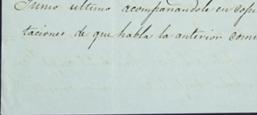 Tumo ultimo acompañandole en copi
taciones de que habla la anterior comu